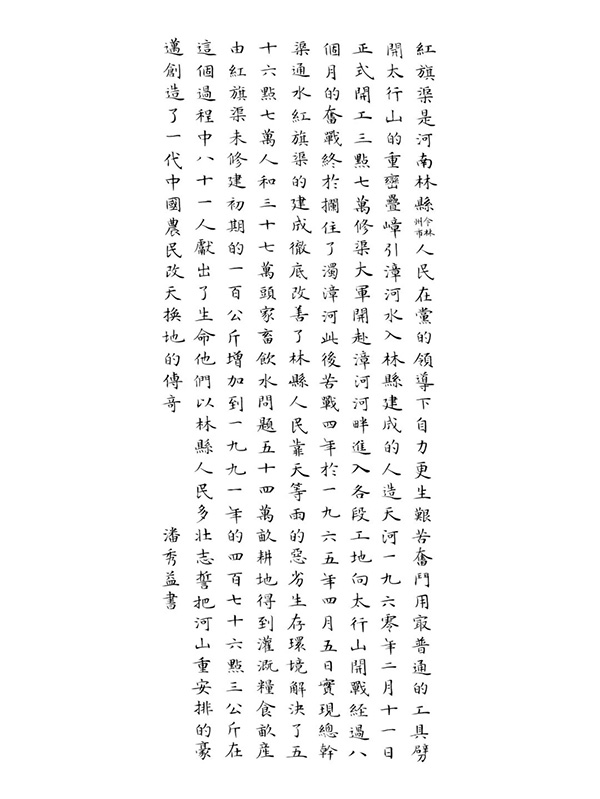 紅旗渠是河南林縣今林州市人民在黨的領導下自力更生艱苦奮鬥用最普通的工具劈
開太行山的重巒疊嶂引漳河水入林縣建成的人造天河一九六零年二月十一日
正式開工三點七萬修渠大軍開赴漳河河畔進入各段工地向太行山開戰經過八
個月的奮戰終於攔住了濁漳河此後苦戰四年於一九六五年四月五日實現總幹
渠通水紅旗渠的建成徹底改善了林縣人民靠天等雨的惡劣生存環境解決了五
十六點七萬人和三十七萬頭家畜飲水問題五十四萬畝耕地得到灌溉糧食畝產
由紅旗渠未修建初期的一百公斤增加到一九九一年的四百七十六點三公斤在
這個過程中八十一人獻出了生命他們以林縣人民多壯志誓把河山重安排的豪
邁創造了一代中國農民改天換地的傳奇 潘秀益書